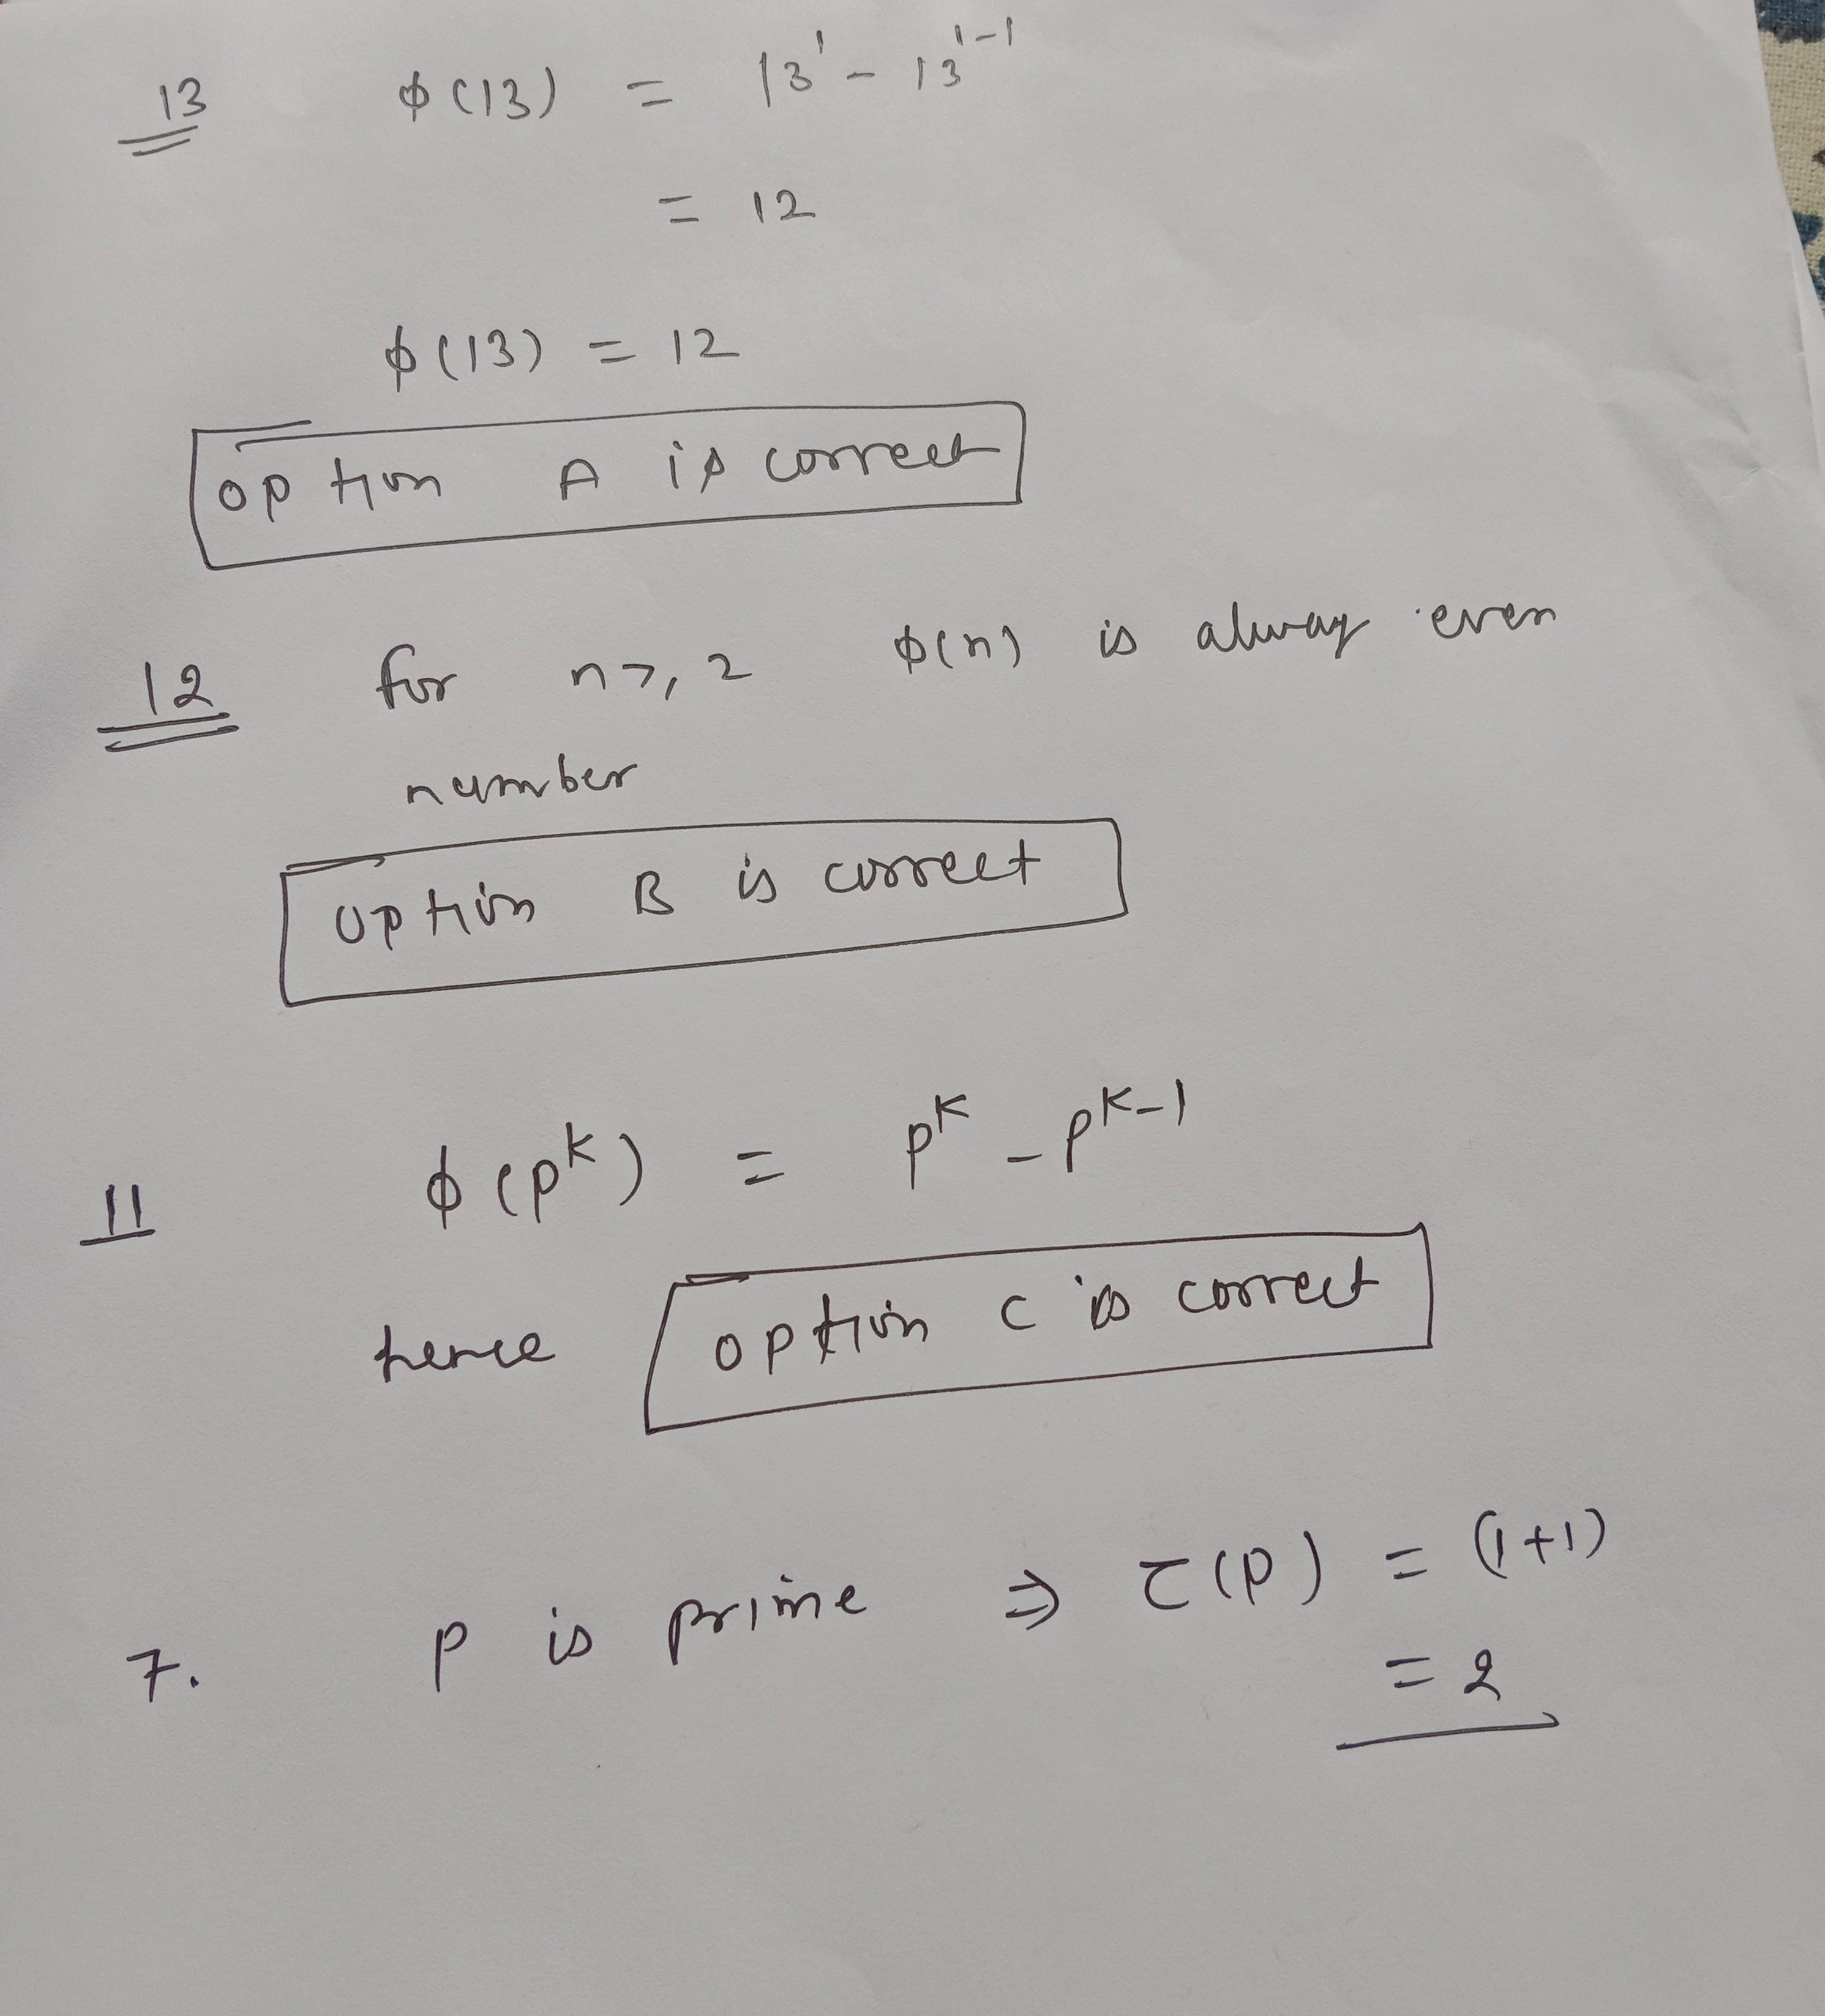 13 ϕ(13) = 13¹ - 13¹⁻¹
= 12
ϕ(13) = 12
option A is correct
12 for n ≥ 2 ϕ(n) is alway even
number
option B is correct
11 ϕ(pᵏ) = pᵏ - pᵏ⁻¹
hence option C is correct
7. p is prime ⇒ τ(p) = (1+1)
= 2